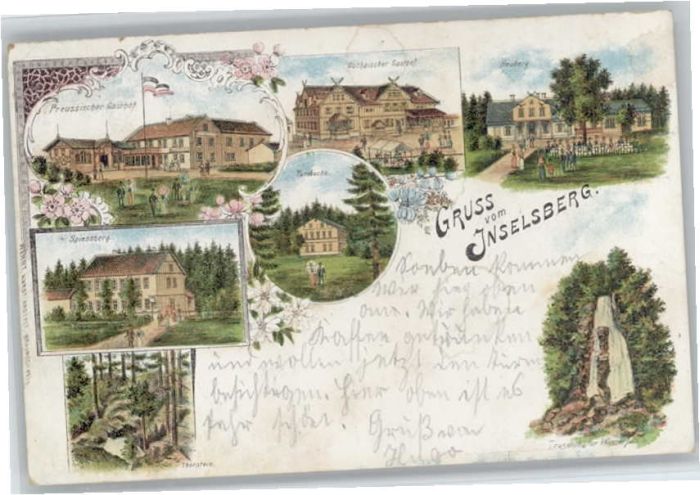 Preussischer Gasthof.
Gothaischer Gasthof.
Heuberg.
Tanzbuche.
Spiessberg.
GRUSS
vom
INSELSBERG.
Soeben kommen
wir hier oben
an. Wir haben
Kaffee getrunken
und wollen jetzt den Turm
besichtigen. Hier oben ist es
sehr schön. Grüße von
Hugo
Thorstein.
Trusenthaler Wasserfall